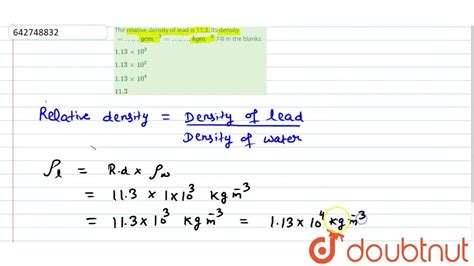 642748832
The relative density of lead is 11.3. Its density
= .... gcm⁻³ = ...... kgm⁻³. Fill in the blanks.
1.13 × 10³
1.13 × 10²
1.13 × 10⁴
11.3
Relative density = Density of lead
Density of water
ρl = R.d × ρw
= 11.3 × 1×10³ kg m⁻³
= 11.3 × 10³ kg m⁻³ = 1.13 × 10⁴ kg m⁻³
doubtnut